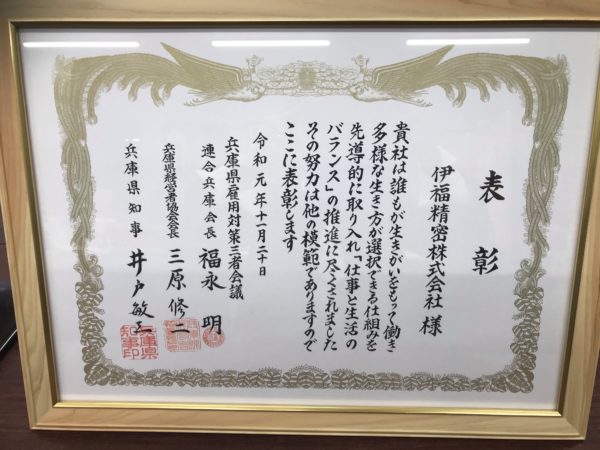 表彰
伊福精密株式会社 様
貴社は誰もが生きがいをもって働き
多様な生き方が選択できる仕組みを
先導的に取り入れ「仕事と生活の
バランス」の推進に尽くされました
その努力は他の模範でありますので
ここに表彰します
令和元年十一月二十日
兵庫県雇用対策三者会議
連合兵庫会長 福永 明
兵庫県経営者協会会長 三原修二
兵庫県知事 井戸敏三
兵庫県知事印